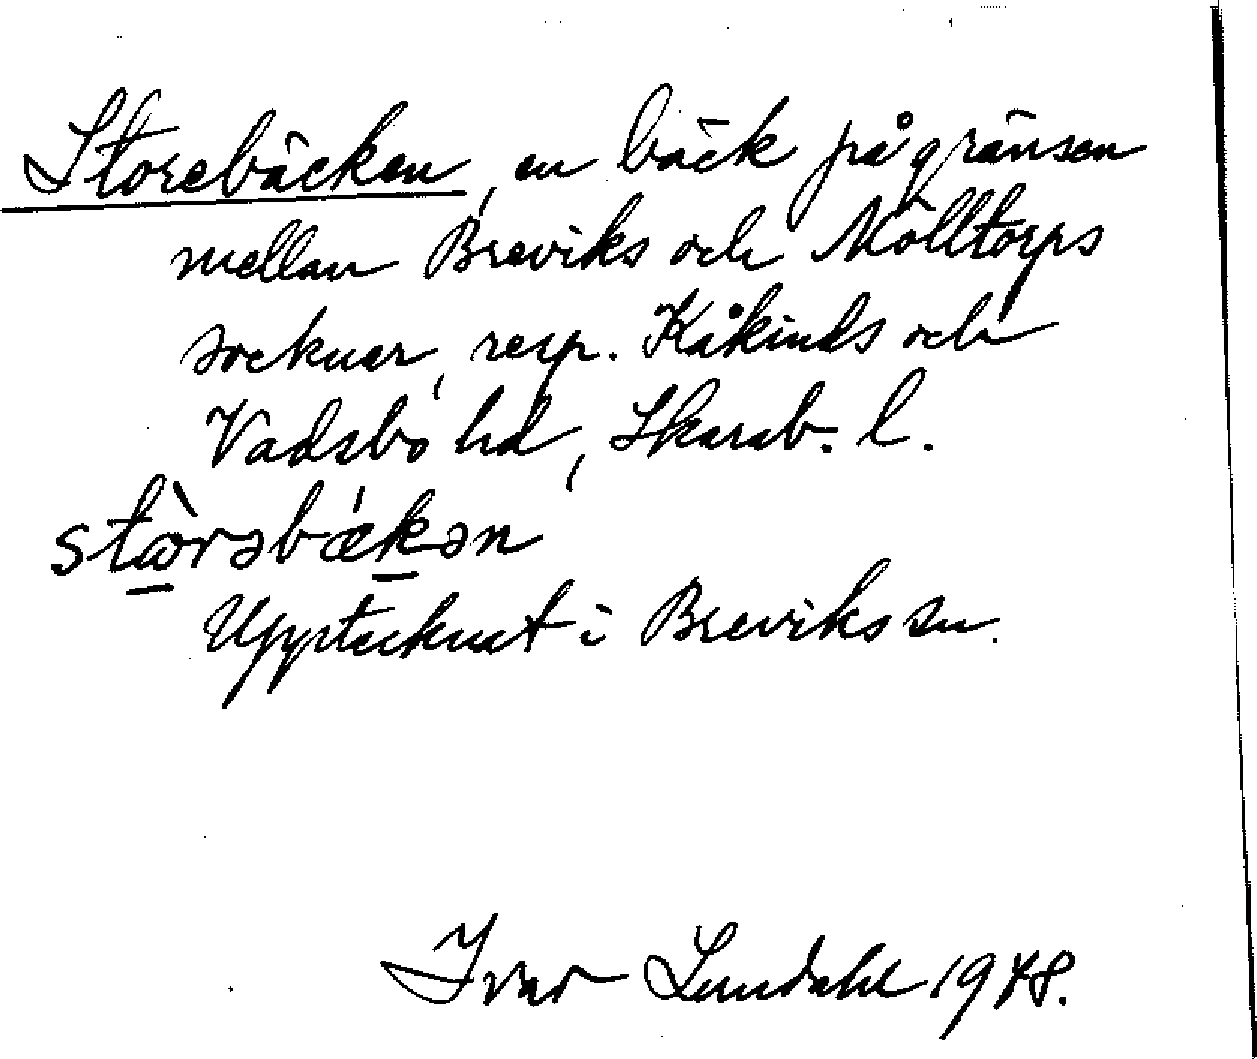 Storebäcken, en bäck på gränsen
mellan Breviks och Mölltorps
socknar, resp. Kåkinds och
Vadsbo hd, Skarab. l.
stɷ̀rəbǽkən
Upptecknat i Breviks sn.
Ivar Lundahl 1948.